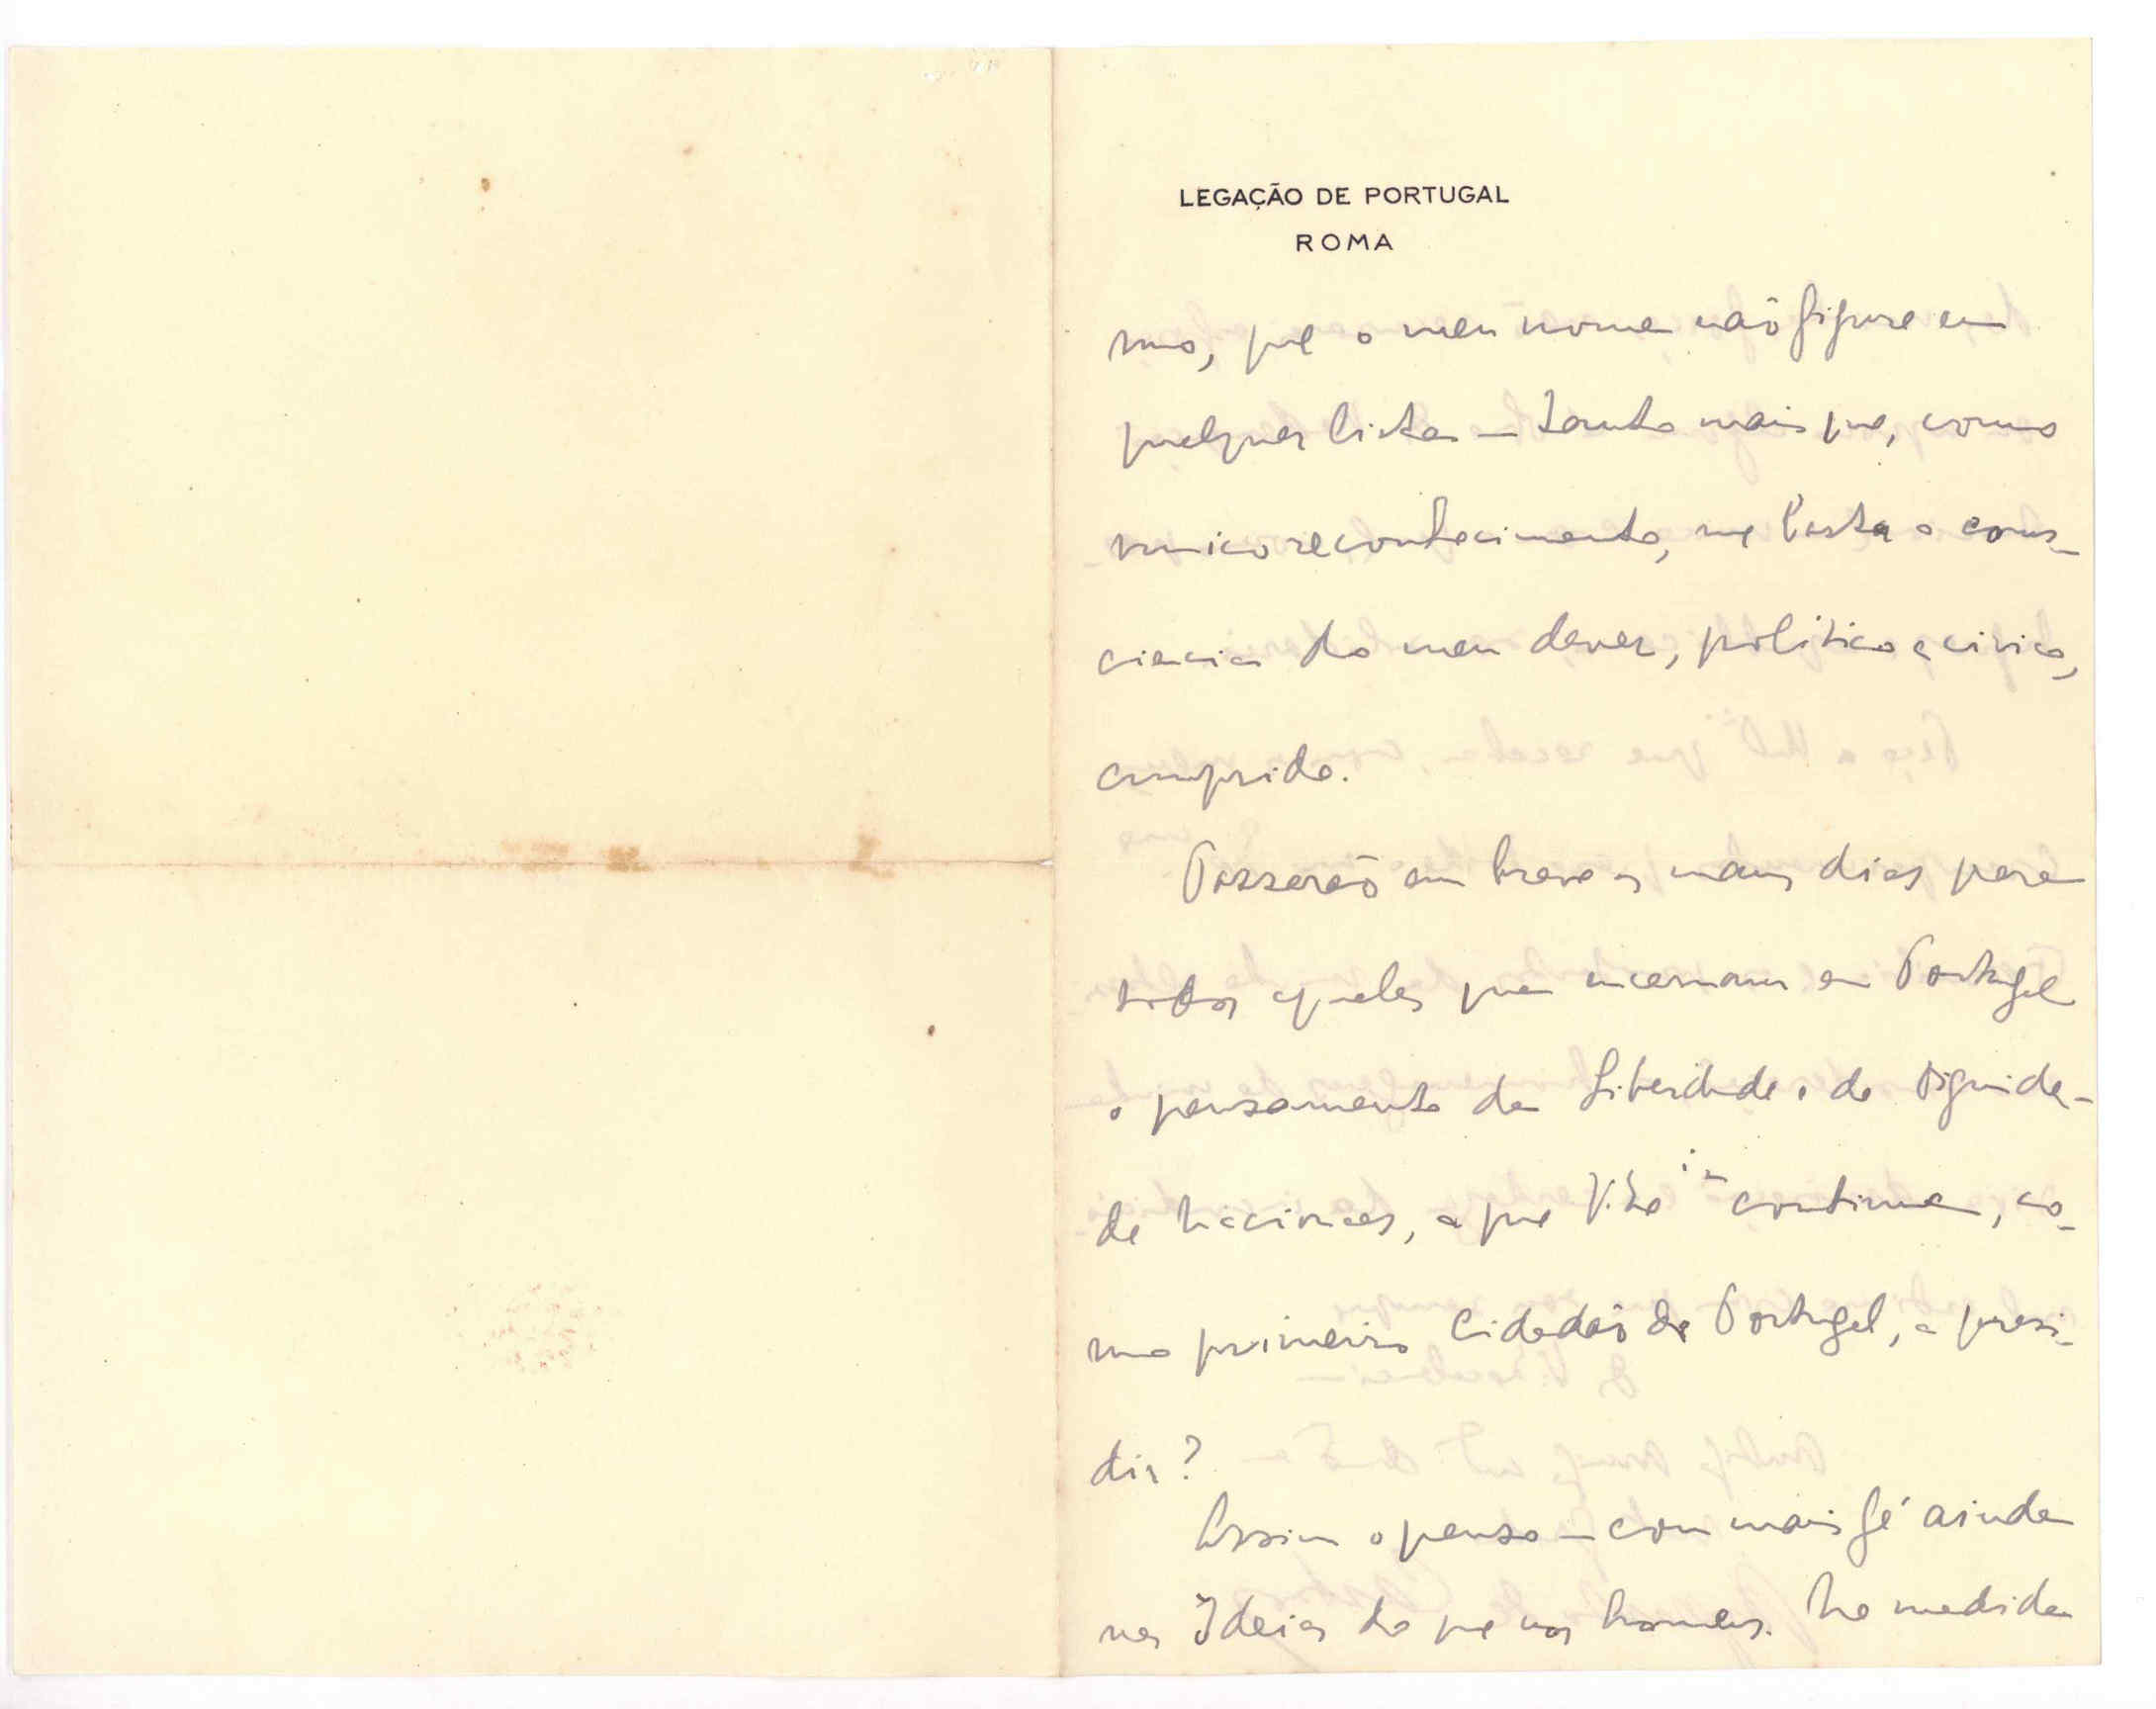 LEGAÇÃO DE PORTUGAL
ROMA
mo, que o meu nome não figure em
qualquer lista — tanto mais que, como
unico reconhecimento, me basta a cons-
ciencia do meu dever, politico e civico,
cumprido.
Passarão em breve os maus dias para
todos aqueles que encarnam em Portugal
o pensamento da Liberdade e da Dignida-
de Nacionaes, a que V. Ex.ia continua, co-
mo primeiro Cidadão de Portugal, a presi-
dir?
Assim o penso — com mais fé ainda
nas Ideias do que nos homens. Na medida